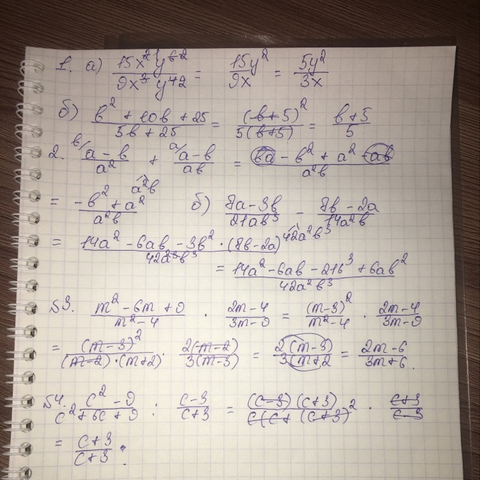 1. а) 15x²y⁶² / 9x³y⁴² = 15y² / 9x = 5y² / 3x
б) (b² + 10b + 25) / (5b + 25) = (b+5)² / 5(b+5) = (b+5) / 5
2. b/ (a - b) / a² + a/ (a - b) / ab = (ba - b² + a² - ab) / a²b
= (-b² + a²) / a²b б) (7a - 3b) / 21ab³ - (7b - 2a) / 14a²b
= 14a² - 6ab - 3b² · (7b - 2a) / 42a²b³
= (14a² - 6ab - 21b³ + 6ab²) / 42a²b³
№3. (m² - 6m + 9) / (m² - 4) · (2m - 4) / (3m - 9) = (m - 3)² / (m² - 4) · (2m - 4) / (3m - 9)
= (m - 3)² / (m - 2) · (m + 2) · 2(m - 2) / 3(m - 3) = 2(m - 3) / 3(m + 2 = (2m - 6) / (3m + 6).
№4. (c² - 9) / (c² + 6c + 9) : (c - 3) / (c + 3) = (c - 3)(c + 3) / (c + 3)² · (c + 3) / (c - 3)
= (c + 3) / (c + 3)